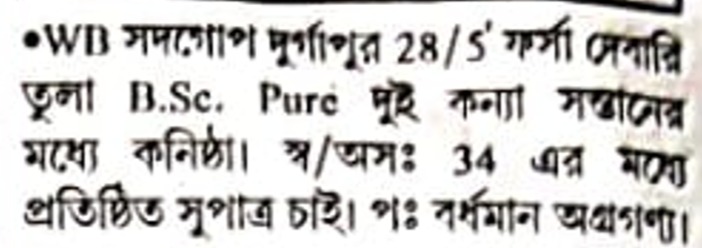 •WB সদগোপ দুর্গাপুর 28/5' ফর্সা দেবারি
তুলা B.Sc. Pure দুই কন্যা সন্তানের
মধ্যে কনিষ্ঠা। স্ব/অসঃ 34 এর মধ্যে
প্রতিষ্ঠিত সুপাত্র চাই। পঃ বর্ধমান অগ্রগণ্য।